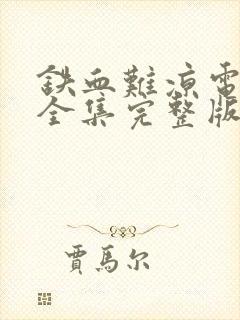 鉄血難凉電
全集完整版
賈馬尔